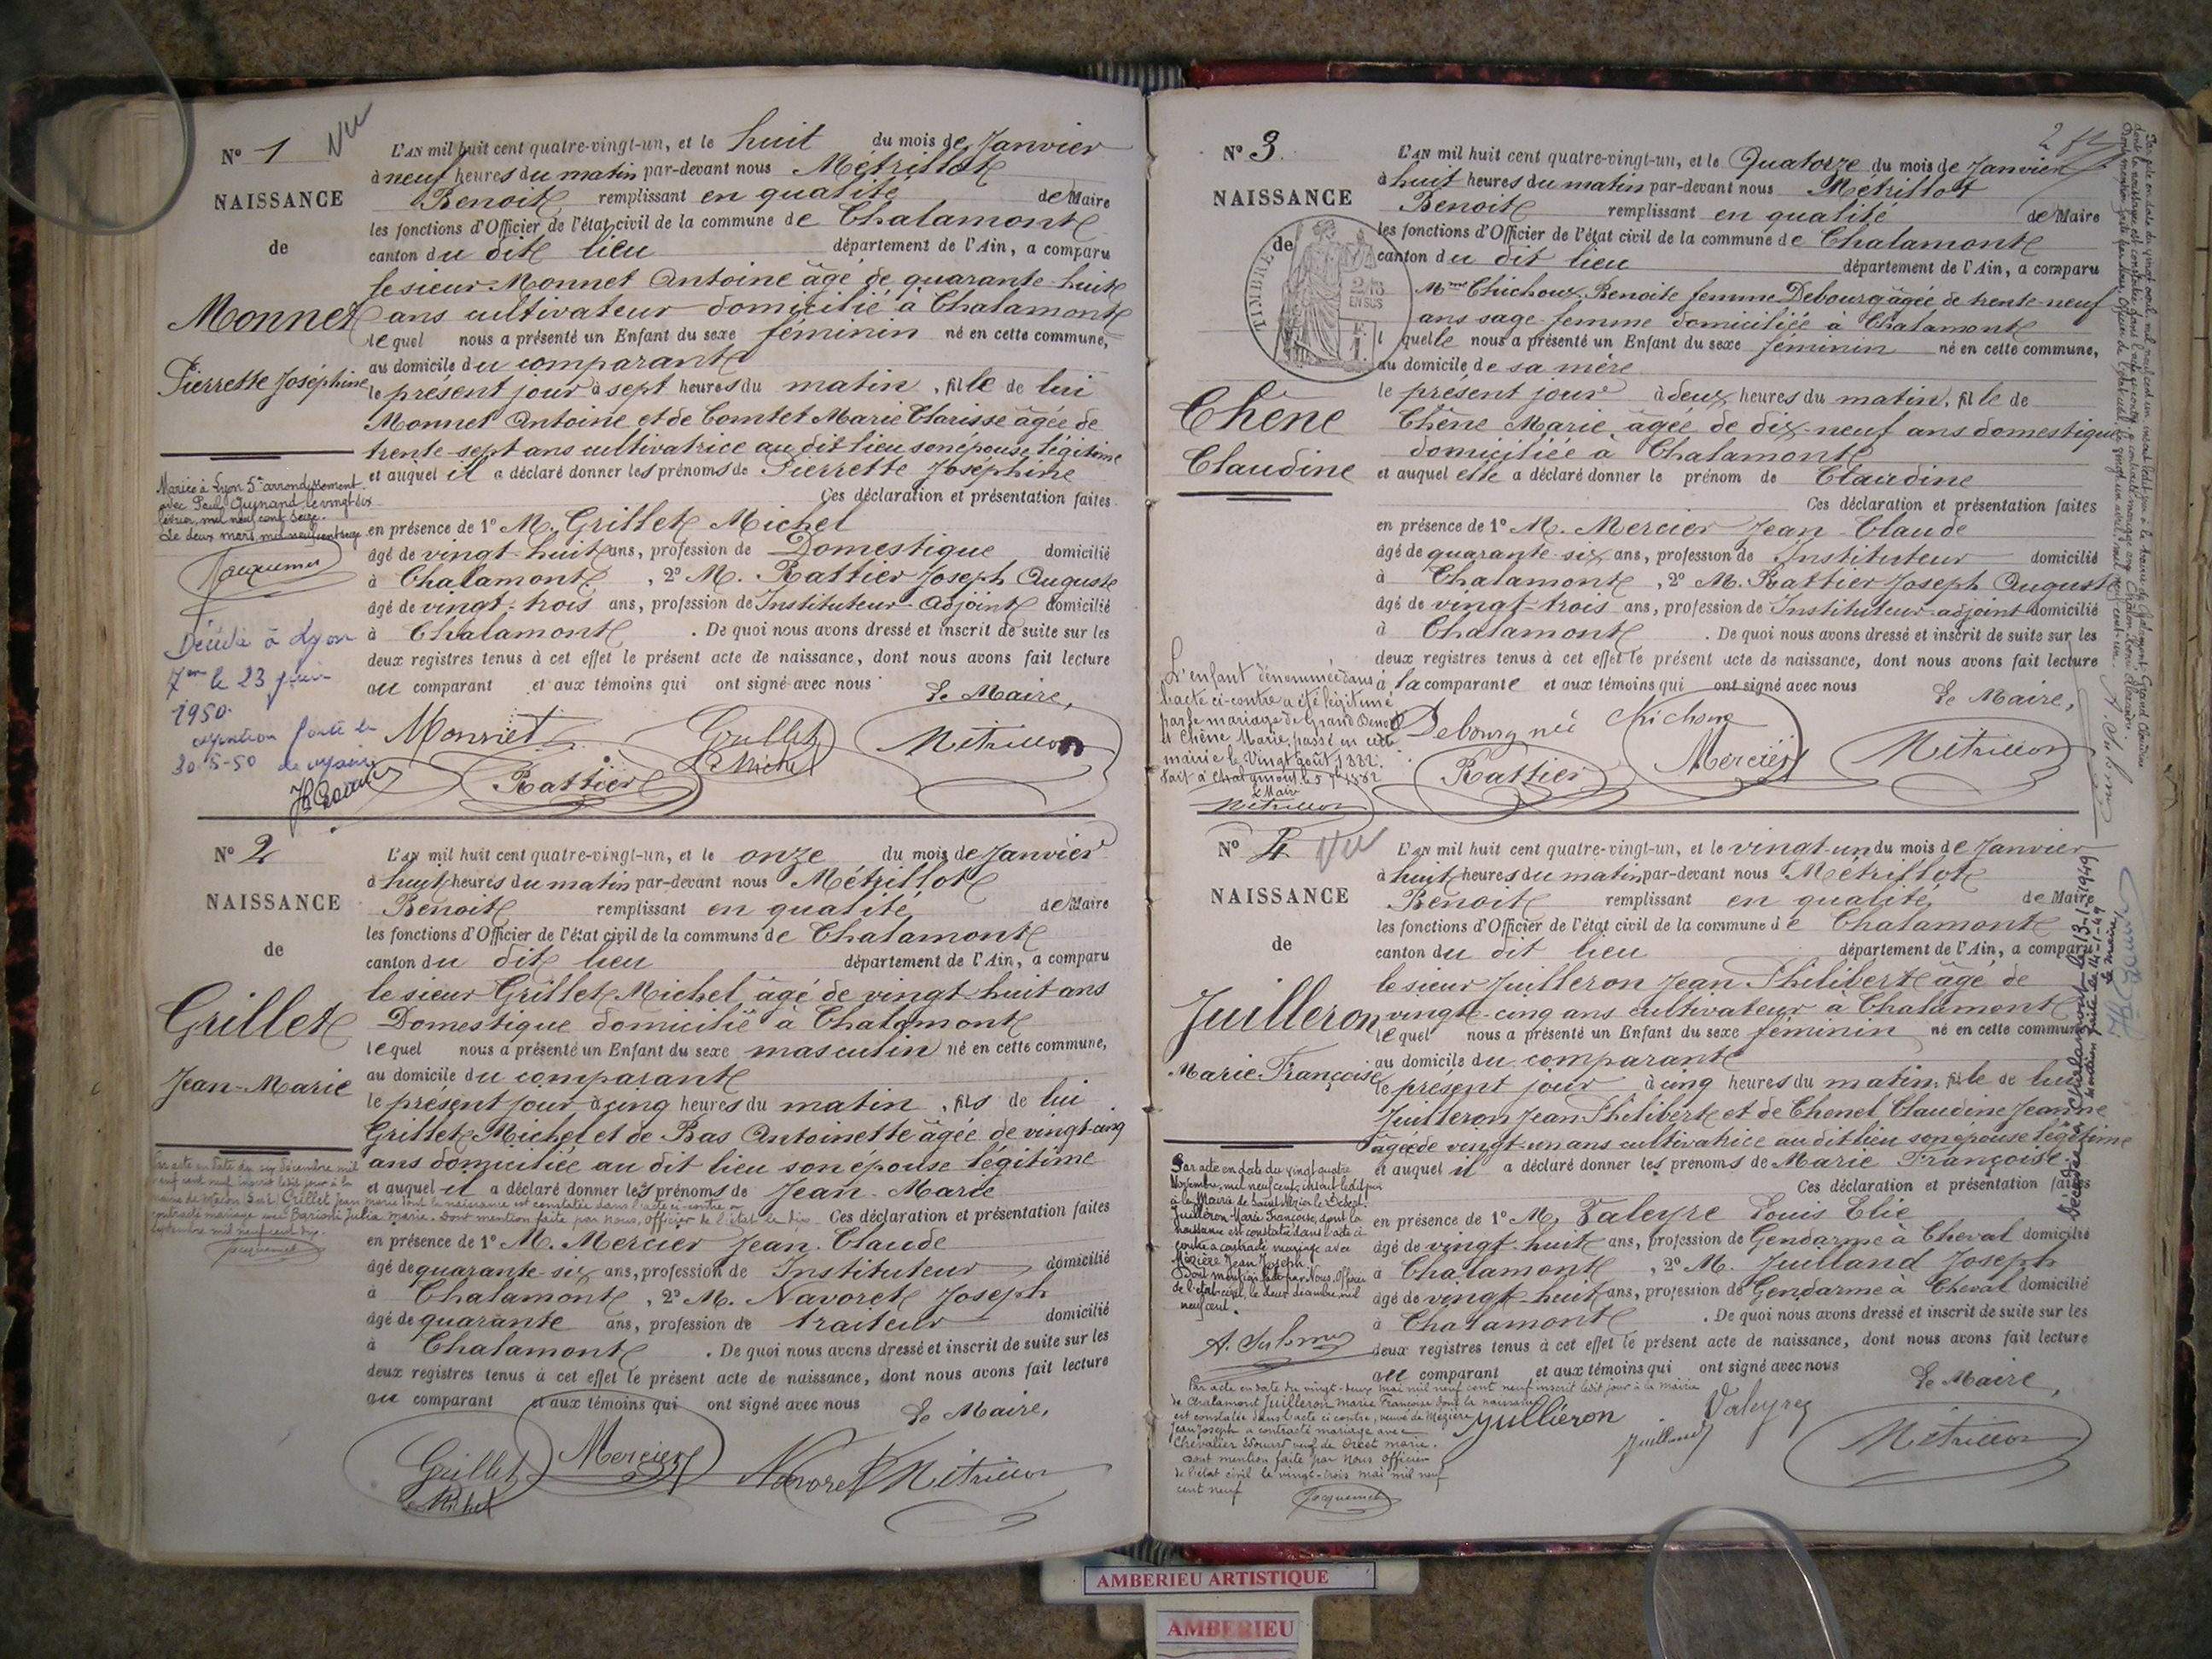 N° 1
Vu
NAISSANCE
de
Monnet
Pierrette Joséphine
L'AN mil huit cent quatre-vingt-un, et le huit du mois de Janvier
à neuf heures du matin par-devant nous Métrillot
Benoit remplissant en qualité de Maire
les fonctions d'Officier de l'état civil de la commune de Chalamont
canton du dit lieu département de l'Ain, a comparu
le sieur Monnet Antoine âgé de quarante-huit
ans cultivateur domicilié à Chalamont
lequel nous a présenté un Enfant du sexe féminin né en cette commune,
au domicile du comparant
le présent jour à sept heures du matin, fille de lui
Monnet Antoine et de Comtet Marie Clarisse âgée de
trente-sept ans cultivatrice au dit lieu son épouse légitime
et auquel il a déclaré donner les prénoms de Pierrette Joséphine
Ces déclaration et présentation faites
en présence de 1° M. Grillet Michel
âgé de vingt-huit ans, profession de Domestique domicilié
à Chalamont, 2° M. Rattier Joseph Auguste
âgé de vingt-trois ans, profession de Instituteur-Adjoint domicilié
à Chalamont. De quoi nous avons dressé et inscrit de suite sur les
deux registres tenus à cet effet le présent acte de naissance, dont nous avons fait lecture
au comparant et aux témoins qui ont signé avec nous
Le Maire,
Monnet Grillet Michel Métrillot
Rattier
Mariée à Lyon 5e arrondissement
avec Guynand le vingt-six
février mil neuf cent seize.
Le deux mars mil neuf cent seize
Jacquemet
Décédée à Lyon
7me le 23
1950.
mention faite le
30-5-50
N° 2
NAISSANCE
de
Grillet
Jean-Marie
L'AN mil huit cent quatre-vingt-un, et le onze du mois de Janvier
à huit heures du matin par-devant nous Métrillot
Benoit remplissant en qualité de Maire
les fonctions d'Officier de l'état civil de la commune de Chalamont
canton du dit lieu département de l'Ain, a comparu
le sieur Grillet Michel âgé de vingt-huit ans
Domestique domicilié à Chalamont
lequel nous a présenté un Enfant du sexe masculin né en cette commune,
au domicile du comparant
le présent jour à cinq heures du matin, fils de lui
Grillet Michel et de Bas Antoinette âgée de vingt-cinq
ans domiciliée au dit lieu son épouse légitime
et auquel il a déclaré donner les prénoms de Jean-Marie
Ces déclaration et présentation faites
en présence de 1° M. Mercier Jean-Claude
âgé de quarante-six ans, profession de Instituteur domicilié
à Chalamont, 2° M. Navoret Joseph
âgé de quarante ans, profession de traiteur domicilié
à Chalamont. De quoi nous avons dressé et inscrit de suite sur les
deux registres tenus à cet effet le présent acte de naissance, dont nous avons fait lecture
au comparant et aux témoins qui ont signé avec nous
Le Maire,
Grillet Michel Mercier Navoret Métrillot
Par acte en date du six décembre mil
neuf cent neuf inscrit ledit jour à la
mairie de Mâcon Grillet Jean
Marie dont la naissance est constatée dans l'acte ci-contre a
contracté mariage avec Julia Marie. Dont mention faite par nous, officier de l'état le dix
septembre mil neuf cent dix.
Jacquemet
N° 3.
NAISSANCE
de
TIMBRE
2/10
EN SUS
Chêne
Claudine
L'AN mil huit cent quatre-vingt-un, et le Quatorze du mois de Janvier
à huit heures du matin par-devant nous Métrillot
Benoit remplissant en qualité de Maire
les fonctions d'Officier de l'état civil de la commune de Chalamont
canton du dit lieu département de l'Ain, a comparu
Mme Chichoux Benoite femme Debourg âgée de trente-neuf
ans sage-femme domiciliée à Chalamont
laquelle nous a présenté un Enfant du sexe féminin né en cette commune,
au domicile de sa mère
le présent jour à deux heures du matin, fille de
Chêne Marie âgée de dix-neuf ans domestique
domiciliée à Chalamont
et auquel elle a déclaré donner le prénom de Claudine
Ces déclaration et présentation faites
en présence de 1° M. Mercier Jean-Claude
âgé de quarante-six ans, profession de Instituteur domicilié
à Chalamont, 2° M. Rattier Joseph Auguste
âgé de vingt-trois ans, profession de Instituteur-adjoint domicilié
à Chalamont. De quoi nous avons dressé et inscrit de suite sur les
deux registres tenus à cet effet le présent acte de naissance, dont nous avons fait lecture
à la comparante et aux témoins qui ont signé avec nous
Le Maire,
Debourg née Chichoux
Rattier Mercier Métrillot
L'enfant dénommée dans
l'acte ci-contre a été légitimé
par le mariage de Grand Benoit
et Chêne Marie, passé en cette
mairie le Vingt août 1882.
fait à Chalamont le 5 1882
Le Maire
Métrillot
N° 4
Vu
NAISSANCE
de
Juilleron
Marie Françoise
L'AN mil huit cent quatre-vingt-un, et le vingt-un du mois de Janvier
à huit heures du matin par-devant nous Métrillot
Benoit remplissant en qualité de Maire
les fonctions d'Officier de l'état civil de la commune de Chalamont
canton du dit lieu département de l'Ain, a comparu
le sieur Juilleron Jean Philibert âgé de
vingt-cinq ans cultivateur à Chalamont
lequel nous a présenté un Enfant du sexe féminin né en cette commune
au domicile du comparant
le présent jour à cinq heures du matin, fille de lui
Juilleron Jean Philibert et de Chenel Claudine Jeanne
âgée de vingt-un ans cultivatrice au dit lieu son épouse légitime
et auquel il a déclaré donner les prénoms de Marie Françoise.
Ces déclaration et présentation faites
en présence de 1° M. Valeyre Louis Elie
âgé de vingt-huit ans, profession de Gendarme à Cheval domicilié
à Chalamont, 2° M. Juilland Joseph
âgé de vingt-huit ans, profession de Gendarme à Cheval domicilié
à Chalamont. De quoi nous avons dressé et inscrit de suite sur les
deux registres tenus à cet effet le présent acte de naissance, dont nous avons fait lecture
au comparant et aux témoins qui ont signé avec nous
Le Maire,
Juilleron Valeyre
Juilland Métrillot
Par acte en date du vingt quatre
Novembre mil neuf cent, inscrit ledit jour
à la Mairie de Saint
Juilleron Marie Françoise, dont la
naissance est constatée dans l'acte ci-
contre a contracté mariage avec
Mézière Jean Joseph.
Dont mention faite par Nous, Officier
de l'état civil, le deux décembre mil
neuf cent.
Par acte en date du vingt-deux mai mil neuf cent neuf inscrit ledit jour à la Mairie
de Chalamont Juilleron Marie Françoise dont la naissance
est constatée dans l'acte ci contre, veuve de Mézière
Jean Joseph a contracté mariage avec
Chevalier Edouard veuf de Marie.
dont mention faite par nous officier
de l'état civil le vingt-trois mai mil neuf
cent neuf
Jacquemet
Décédée à Chalamont le 13-1-1949
Mention faite le 14-1-49
Le maire,
AMBERIEU ARTISTIQUE
AMBERIEU